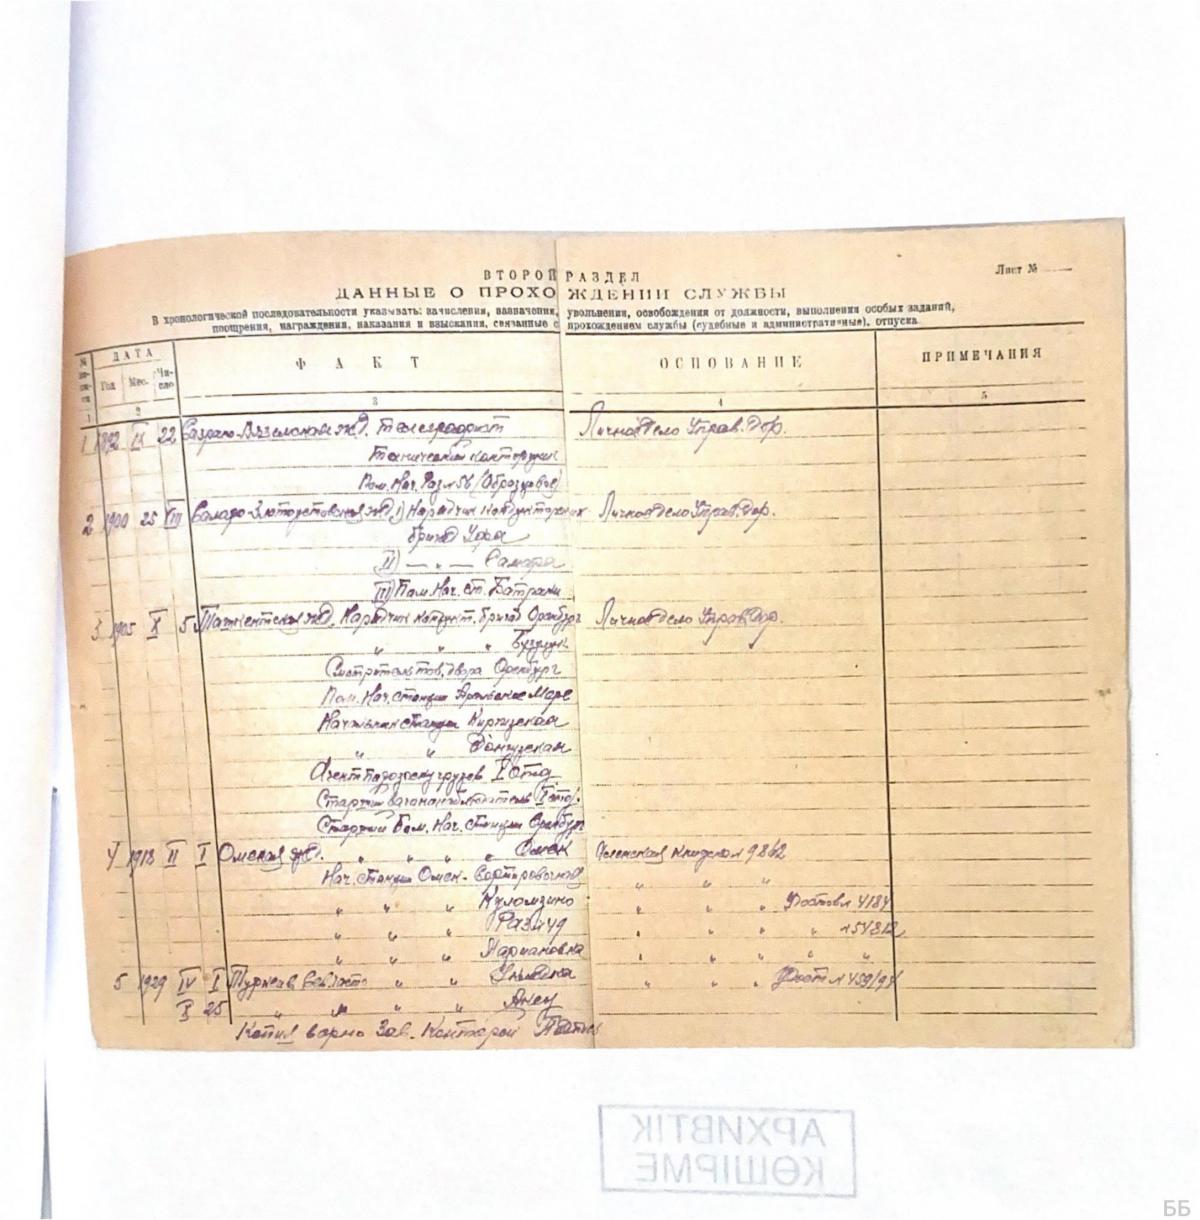 ВТОРОЙ РАЗДЕЛ
Лист №
ДАННЫЕ О ПРОХОЖДЕНИИ СЛУЖБЫ
В хронологической последовательности указывать: зачисления, назначения, увольнения, освобождения от должности, выполнения особых заданий,
поощрения, награждения, наказания и взыскания, связанные с прохождением службы (судебные и административные), отпуска
ДАТА
Год Мес. Число
ФАКТ
ОСНОВАНИЕ
ПРИМЕЧАНИЯ
1 2 3 4 5
1 1892 IX 22 Сызрано-Вяземская ж.д. телеграфист Личное дело Управ. Дор.
Технический конторщик
Пом. Нач. Раз. №56 (Образцовое)
2 1900 25 VIII Самаро-Златоустовская ж.д. I) Нарядчик кондукторских Личное дело Управ. Дор.
бригад Уфа
II) — „ — Самара
III) Пом. Нач. ст. Батраки
3 1905 X 5 Ташкентская ж.д. Нарядчик кондукт. бригад Оренбург Личное дело Управ. Дор.
„ „ „ Бузулук
Смотритель тов. двора Оренбург
Пом. Нач. станции Аральское Море
Начальник станции Киргизская
„ „ Донгузская
Агент по розыску грузов I отд
Старший вагононаблюдатель II отд.
Старший Пом. Нач. станции Оренбург
4 1918 II I Омская ж.д. „ „ „ Омск Членская книжка № 9862
Нач. станции Омск-Сортировочная „ „ „
„ „ „ Куломзино „ „ „ Фостов № 4184
„ „ „ Разъезд „ „ „ „ № 54812
„ „ „ Мариановка „ „ „ „
5 1929 IV I Турксиб „ „ „ „ „ № 459/94
X 25 „ „ „ „
Копия верно Зав. Конторой
АРХИВТІК
КӨШІРМЕ
ББ